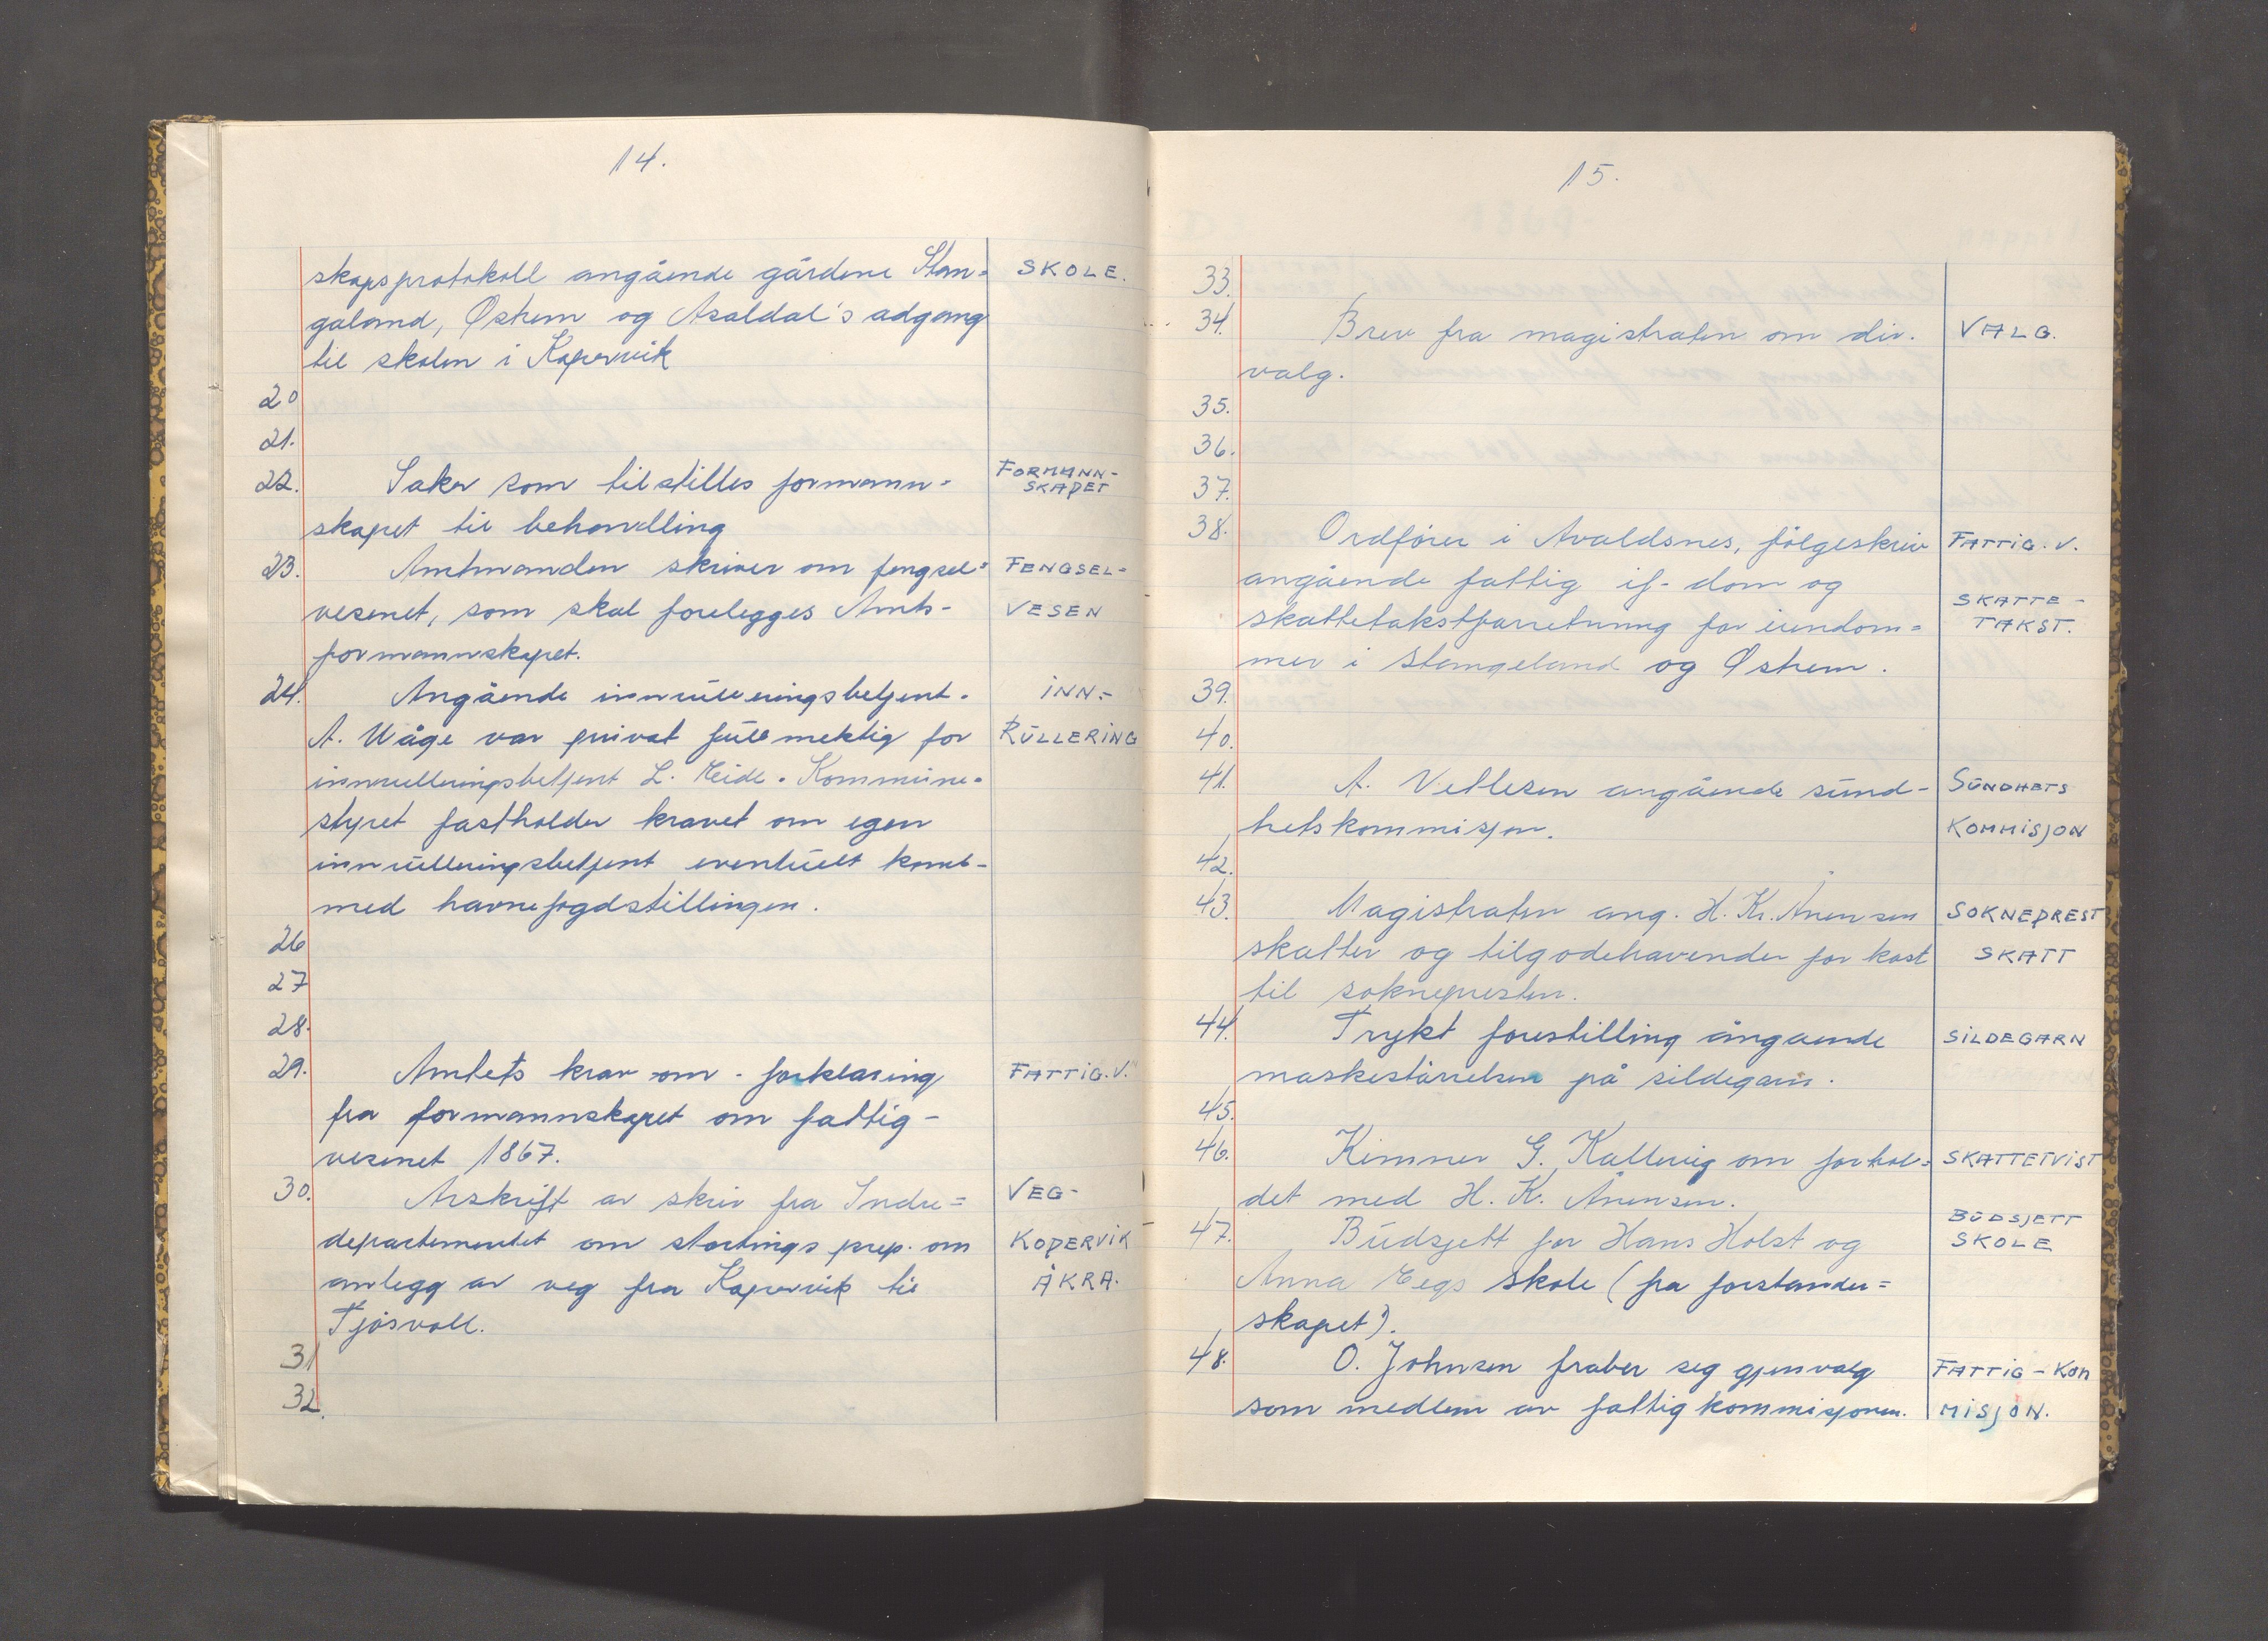 14.
skapsprotokoll angående gårdene Stan= SKOLE.
galand, Østrem og Asaldal's adgang
til skolen i Kopervik
20
21.
22. Saker som tilstilles formann- FORMANN-
SKAPET
skapet til behandling
23. Amtmanden skriver om fengsel= FENGSEL-
vesenet, som skal forelegges Amts- VESEN
formannskapet.
24. Angående innrulleringsbetjent. INN-
A. Våge var privat fullmektig for RULLERING
innrulleringsbetjent L. Eide. Kommune-
styret fastholder kravet om egen
innrulleringsbetjent eventuelt komb-
med havnefogdstillingen.
26
27
28.
29. Amtets krav om forklaring FATTIG.V.
fra formannskapet om fattig-
vesenet 1867.
30. Avskrift av skriv fra Indre= VEG-
departementet om stortings prop. om KOPERVIK
anlegg av veg fra Kopervik til ÅKRA.
Tjøsvoll.
31
32.
15.
33.
34. Brev fra magistraten om div. VALG.
valg.
35.
36.
37.
38. Ordfører i Avaldsnes, følgeskriv FATTIG.V.
angående fattig if. dom og
SKATTE-
skattetakstforretning for eiendom= TAKST.
mer i Stangeland og Østrem.
39.
40.
41. A. Vetlesen angående sund- SUNDHETS
hetskommisjon. KOMMISJON
42.
43. Magistraten ang. H. Kr. Ånensen SOKNEPREST
skatter og tilgodehavender for kost SKATT
til soknepresten.
44. Trykt forestilling ångaende SILDEGARN
maskestørrelsen på sildegarn.
45.
46. Kemner G. Kallevig om forhol= SKATTETVIST
det med H. K. Ånensen.
BUDSJETT
47. Budsjett for Hans Holst og SKOLE
Anna Eegs skole (fra forstander=
skapet).
48. O. Johnsen fraber seg gjenvalg FATTIG-KOM
som medlem av fattigkommisjonen. MISJON.